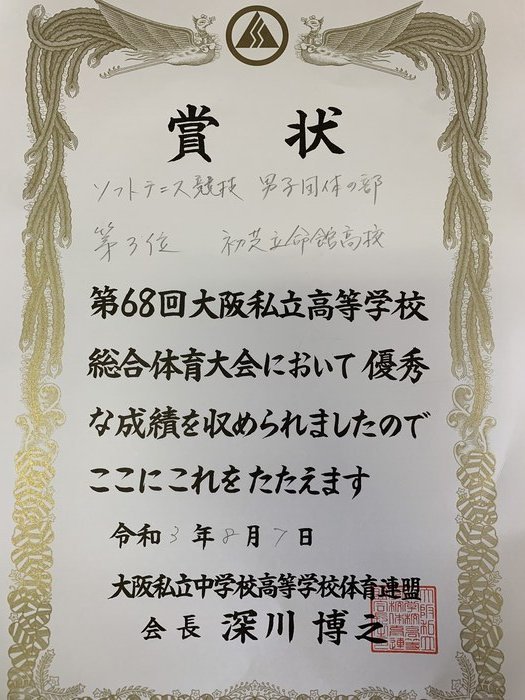 賞状
ソフトテニス競技 男子団体の部
第3位 初芝立命館高校
第68回大阪私立高等学校
総合体育大会において優秀
な成績を収められましたので
ここにこれをたたえます
令和3年8月7日
大阪私立中学校高等学校体育連盟
会長 深川博之